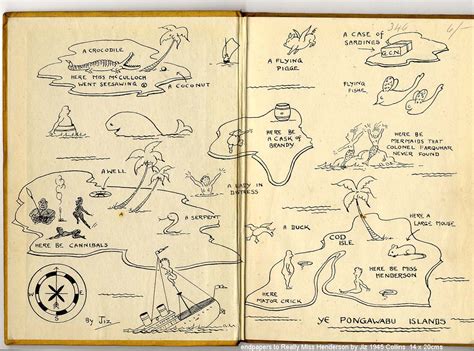 A CROCODILE
HERE MISS McCULLOCH
WENT SEESAWING
A COCONUT
A WELL
A LADY IN
DISTRESS
A SERPENT
HERE BE CANNIBALS
BY JIZ
A FLYING
PIGGE
A CASE OF
SARDINES
G.C.N.
6/-
FLYING
FISHE
HERE BE
A CASK OF
BRANDY
HERE BE
MERMAIDS THAT
COLONEL FARQUHAR
NEVER FOUND
A DUCK
COD
ISLE
HERE A
LARGE MOUSE
HERE BE MISS
HENDERSON
HERE
MAJOR CRICK
YE PONGAWABU ISLANDS
endpapers to Really Miss Henderson by Jiz 1945 Collins 14 x 20cms